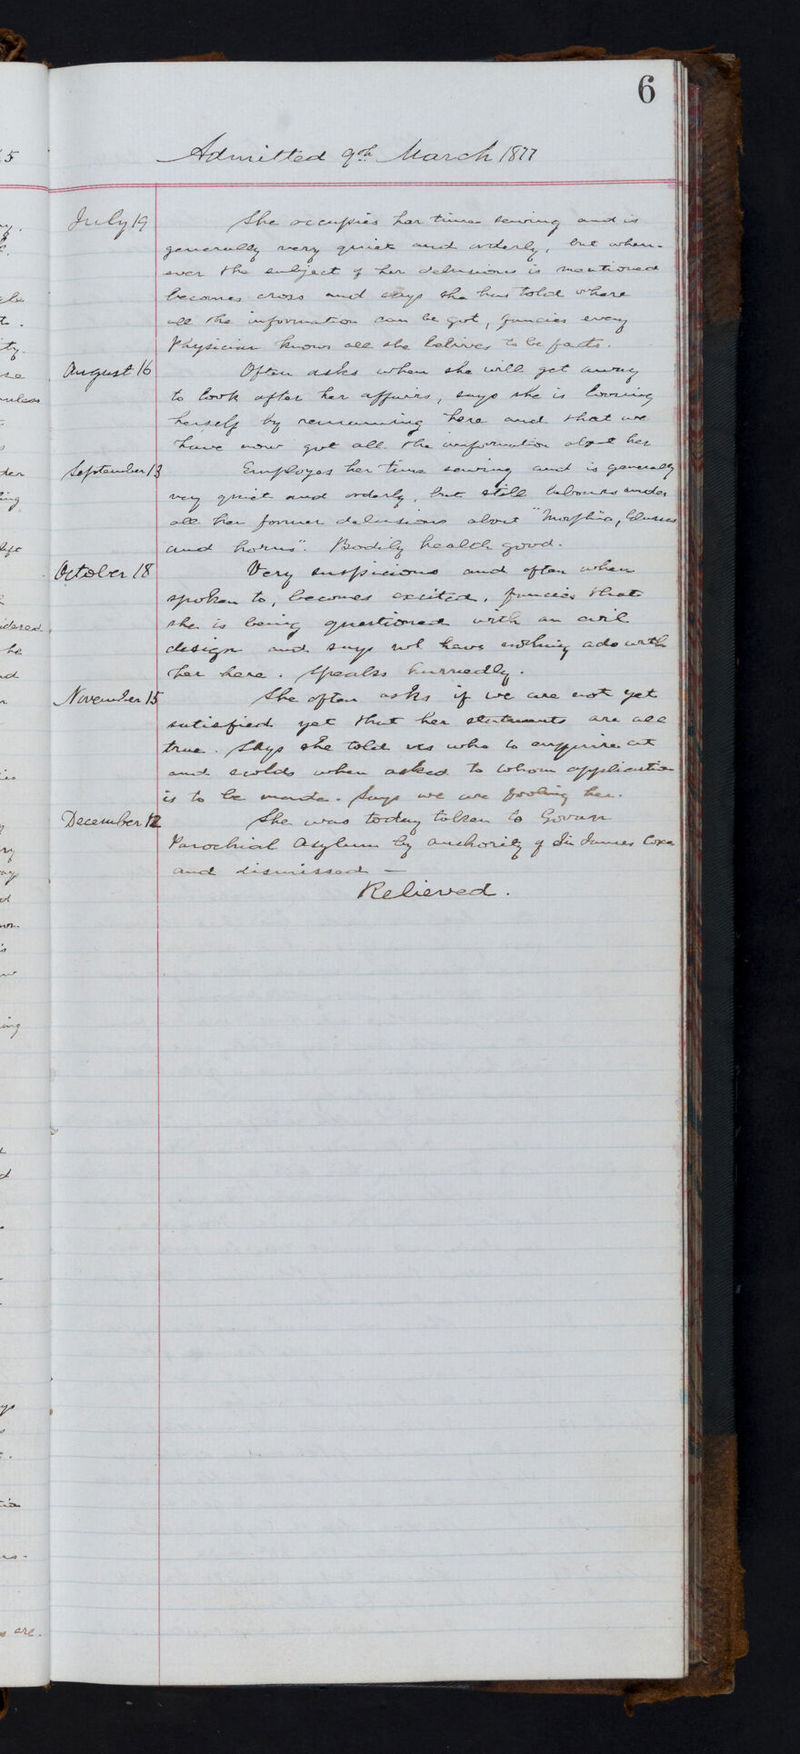 6
Admitted 9th March 1877
July 19 She occupies her time sewing and is
generally very quiet and orderly, but when-
ever the subject of her delusions is mentioned
becomes cross and says she has told where
all the information can be got, fancies every
Physician knows all she belives to be facts.
August 16 Often asks when she will get away
to look after her affairs, says she is
herself by remaining here and that we
have now got all the information about her
September 13 Employes her time sewing and is generally
very quiet and orderly, but still labours under
all her former delusions about "Morphia,
and horns". Bodily health good.
October 18 Very suspicious and often when
spoken to, becomes excited, fancies that
she is being questioned with an evil
design and says we have nothing ado with
her here. Speaks hurriedly.
November 15 She often asks if we are not yet
satisfied yet that her statements are all
true. Says she told us who to enquire at
and scolds when asked to whom application
is to be made. Says we are fooling her.
December 12 She was today taken to Govan
Parochial Asylum by authority of Sir James Coxe
and dismissed —
Relieved.